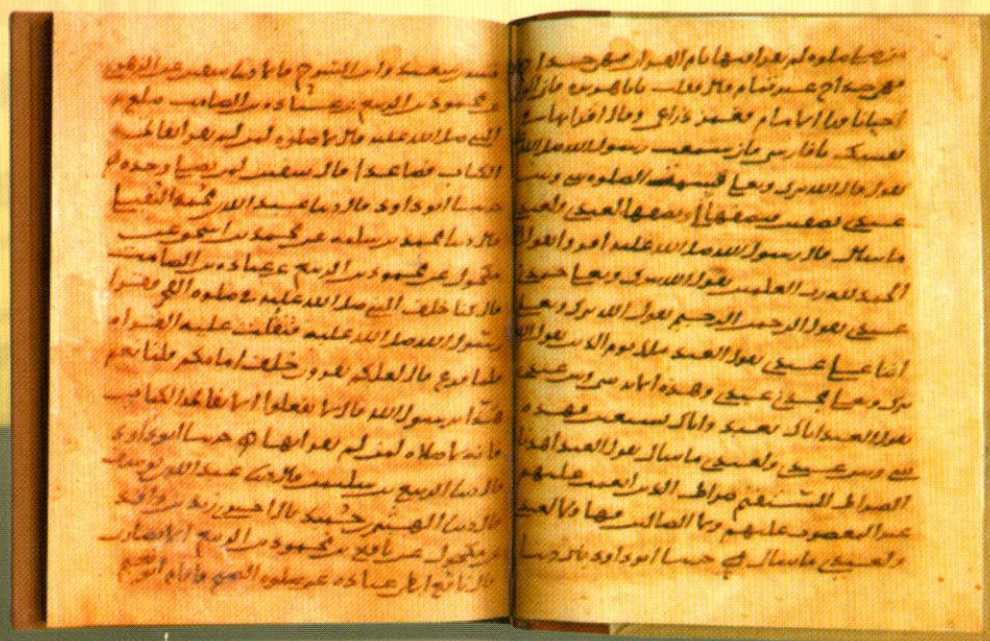 من صلى صلوه لم يقرا فيها بام القران فهى خداج
فهى خداج غير تمام قال فقلت يا ابا هريره فانى اكون
احيانا ورا الامام فغمز ذراعى وقال اقرا بها فى
نفسك يا فارسى فانى سمعت رسول الله صلى الله
يقول قال الله تبرك وتعلى قسمت الصلوه بينى وبين
عبدى نصفين فنصفها لى ونصفها لعبدى ولعبدى
ما سال قال رسول الله صلى الله عليه اقروا يقول
الحمد لله رب العلمين يقول الله تبرك وتعلى حمدنى
عبدى يقول الرحمن الرحيم يقول الله تبرك وتعلى
اثنا على عبدى يقول العبد ملك يوم الدين يقول الله
تبرك وتعلى مجدنى عبدى وهذه الايه بينى وبين عبدى
يقول العبد اياك نعبد واياك نستعين فهذه
بينى وبين عبدى ولعبدى ما سال يقول العبد اهدنا
الصراط المستقيم صراط الذين انعمت عليهم
غير المغضوب عليهم ولا الضالين فهاولا لعبدى
ولعبدى ما سال حدثنا ابو داود قال حدثنا
قتيبه بن سعيد وابن السرح قالا حدثنا سفين عن الزهرى
عن محمود بن الربيع عن عباده بن الصامت يبلغ به
النبى صلى الله عليه قال لا صلوه لمن لم يقرا بفاتحه
الكتاب فصاعدا قال سفين لمن يصلى وحده
حدثنا ابو داود قال حدثنا عبد الله بن محمد النفيلى
قال حدثنا محمد بن سلمه عن محمد بن اسحق عن
مكحول عن محمود بن الربيع عن عباده بن الصامت
قال كنا خلف النبى صلى الله عليه فى صلوه الفجر فقرا
رسول الله صلى الله عليه فثقلت عليه القراه
فلما فرغ قال لعلكم تقرون خلف امامكم قلنا نعم
هذا يرسول الله قال لا تفعلوا الا بفاتحه الكتاب
فانه لا صلاه لمن لم يقرا بها حدثنا ابو داود
قال حدثنا الربيع بن سليمن قال حدثنا عبد الله بن يوسف
قال حدثنا الهيثم بن حميد قال اخبرنى زيد بن واقد
عن مكحول عن نافع بن محمود بن الربيع الانصارى
قال نافع ابطا عباده عن صلوه الصبح فاقام ابو نعيم